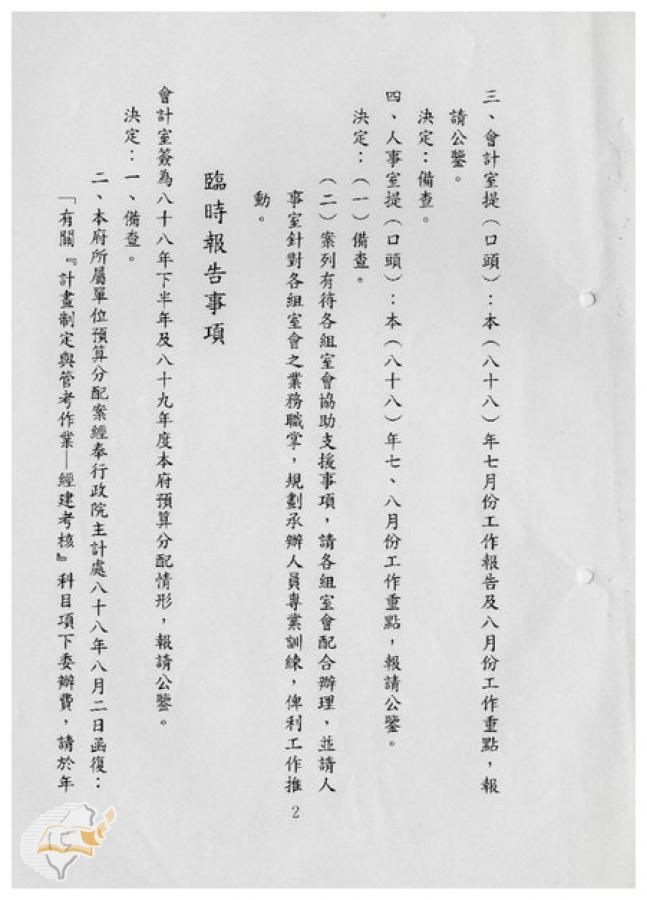 三、會計室提（口頭）：本（八十八）年七月份工作報告及八月份工作重點，報
請公鑒。
決定：備查。
四、人事室提（口頭）：本（八十八）年七、八月份工作重點，報請公鑒。
決定：（一）備查。
（二）案列有待各組室會協助支援事項，請各組室會配合辦理，並請人
事室針對各組室會之業務職掌，規劃承辦人員專業訓練，俾利工作推
動。
臨時報告事項
會計室簽為八十八年下半年及八十九年度本府預算分配情形，報請公鑒。
決定：一、備查。
二、本府所屬單位預算分配案經奉行政院主計處八十八年八月二日函復：
「有關『計畫制定與管考作業—經建考核』科目項下委辦費，請於年
2